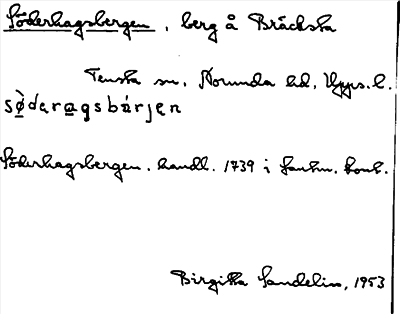 Söderhagsbergen, berg å Bräcksta
Tensta sn, Norunda hd, Upps. l.
sǿderagsbàrjen
Söderhagsbergen. handl. 1739 i lantm. kont.
Birgitta Sandelin, 1953